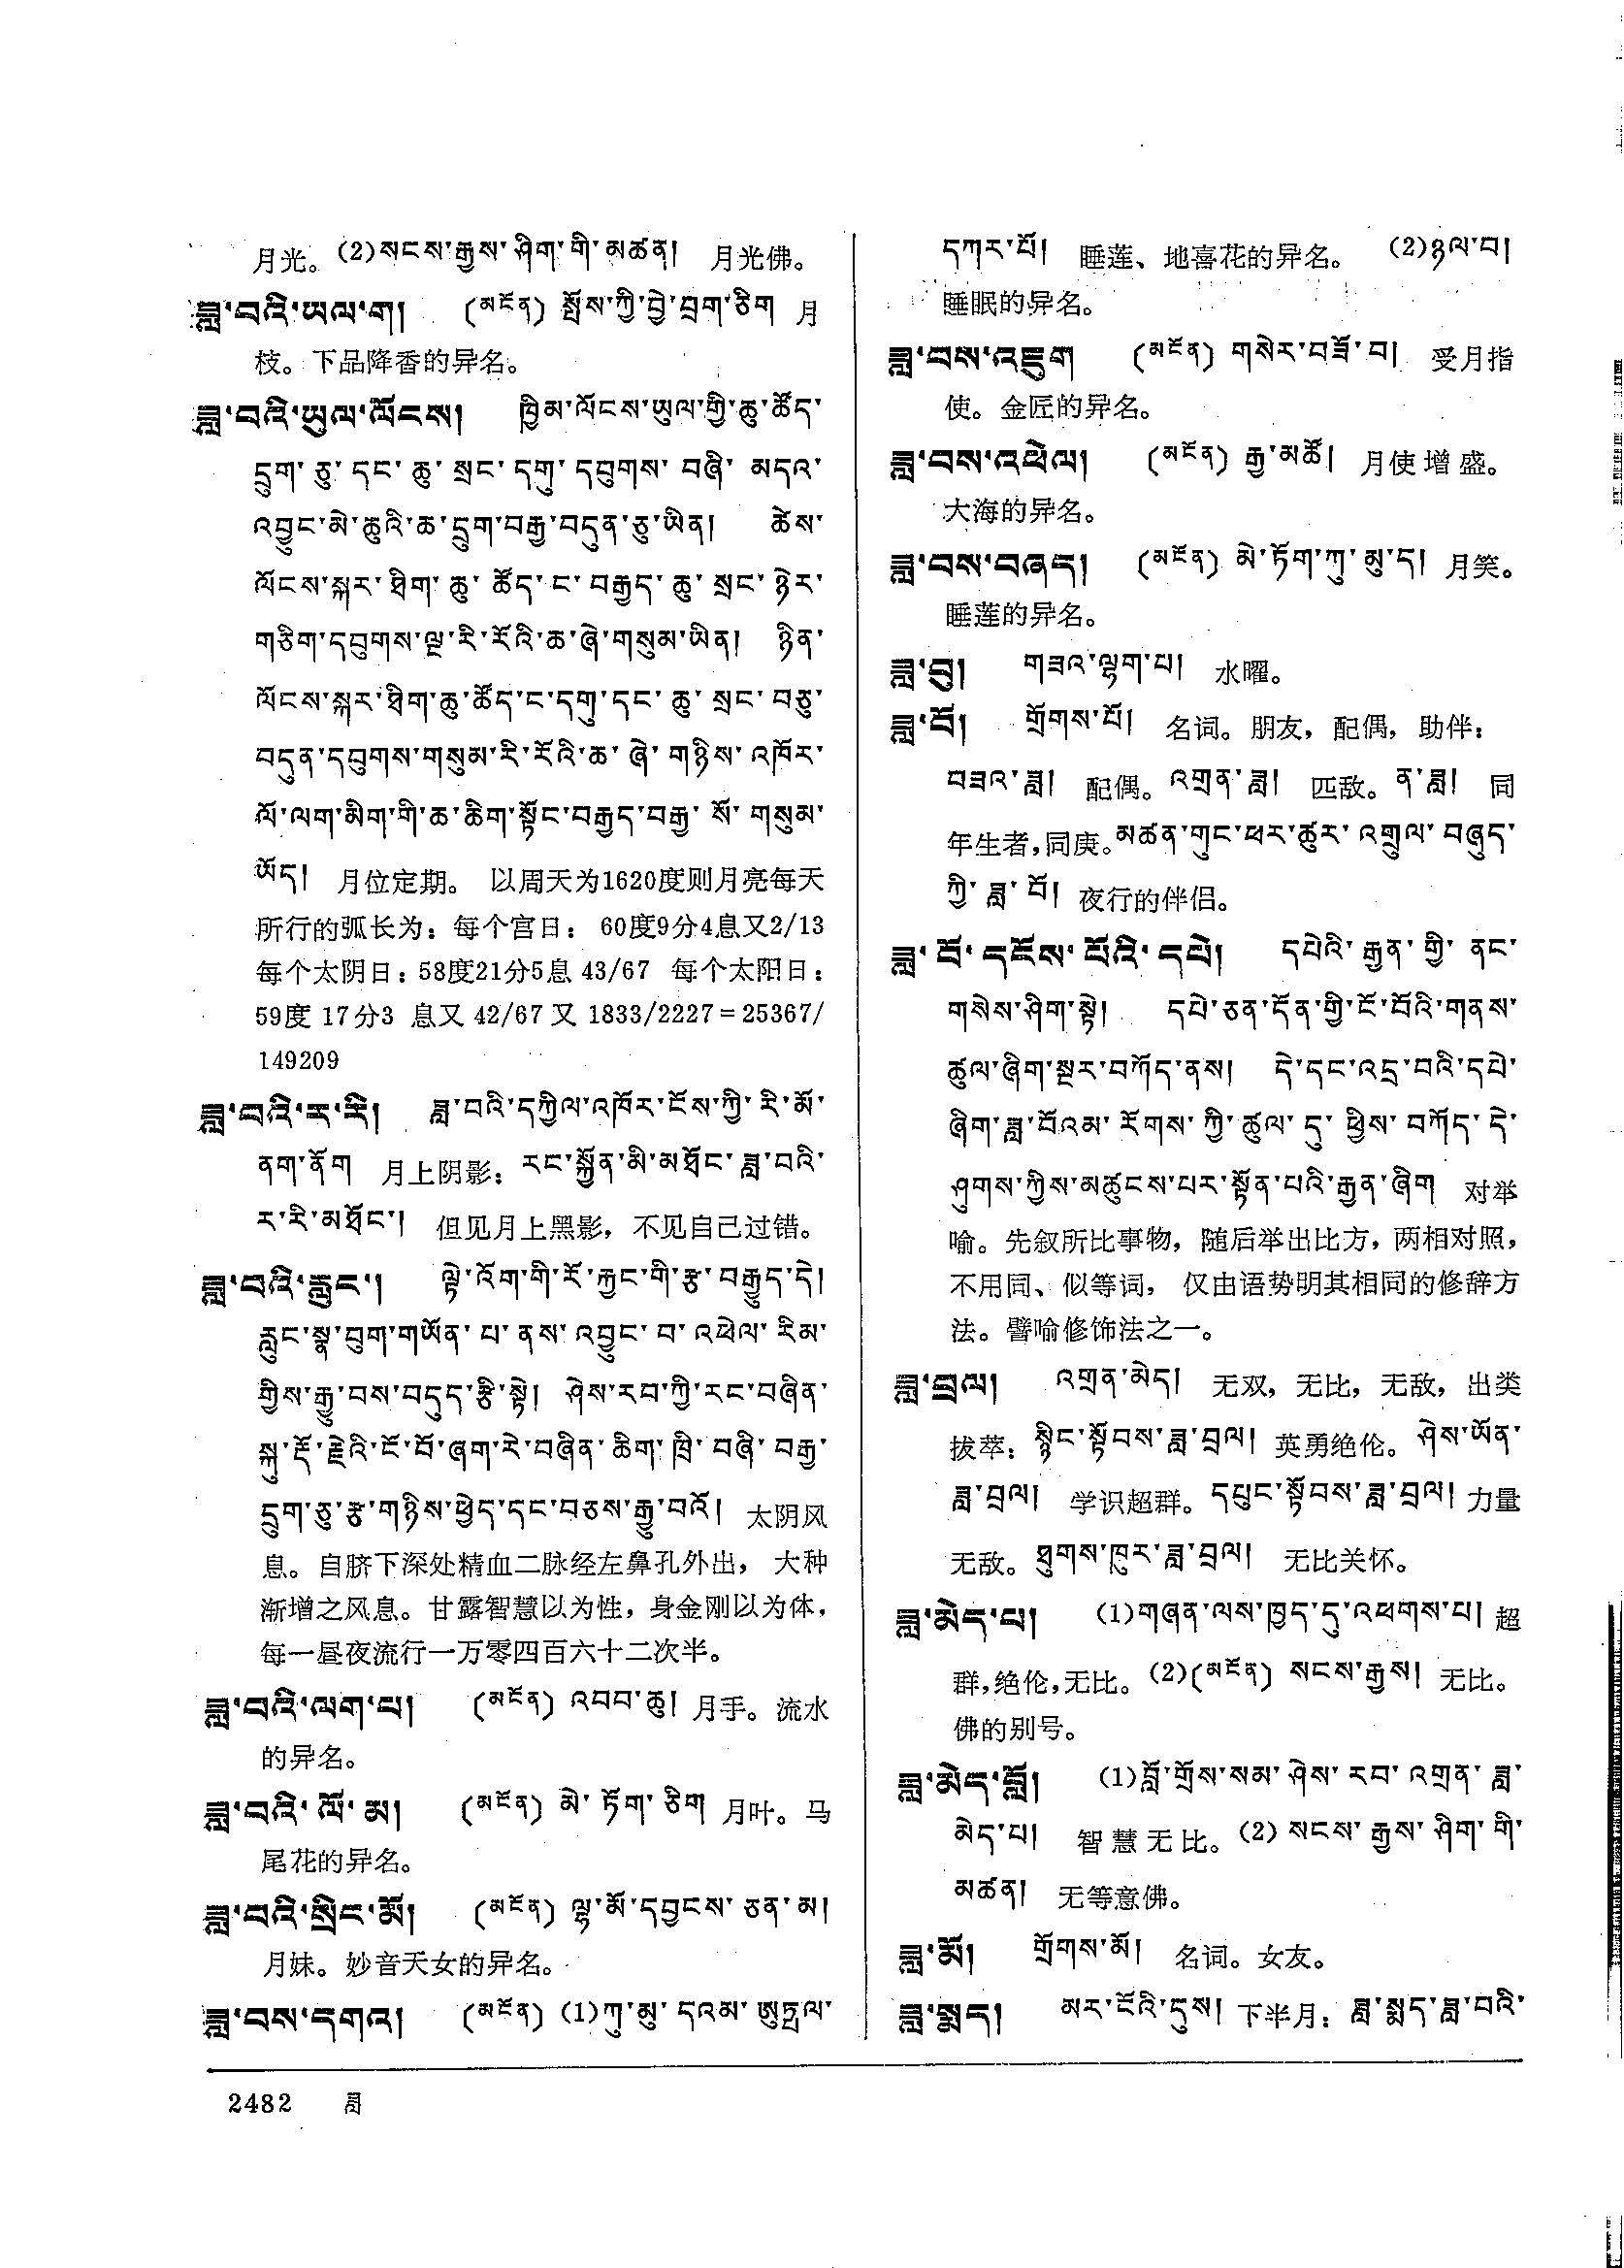 月光。(2)སངས་རྒྱས་ཤིག་གི་མཚན།  月光佛。
ཟླ་བའི་ཡལ་ག།  (མངོན) སྤོས་ཀྱི་བྱེ་བྲག་ཅིག 月
枝。下品降香的异名。
ཟླ་བའི་ཡུལ་ལོངས།  ཁྱིམ་ལོངས་ཡུལ་གྱི་ཆུ་ཚོད་
དྲུག་ཅུ་དང་ཆུ་སྲང་དགུ་དབུགས་བཞི་མདའ་
འབྱུང་མེ་ཆུའི་ཆ་དྲུག་བརྒྱ་བདུན་ཅུ་ཡིན།  ཚེས་
ལོངས་སྐར་ཐིག་ཆུ་ཚོད་ང་བརྒྱད་ཆུ་སྲང་ཉེར་
གཅིག་དབུགས་ལྔ་རི་རོའི་ཆ་ཞེ་གསུམ་ཡིན།  ཉིན་
ལོངས་སྐར་ཐིག་ཆུ་ཚོད་ང་དགུ་དང་ཆུ་སྲང་བཅུ་
བདུན་དབུགས་གསུམ་རི་རོའི་ཆ་ཞེ་གཉིས་འཁོར་
ལོ་ལག་མིག་གི་ཆ་ཆིག་སྟོང་བརྒྱད་བརྒྱ་སོ་གསུམ་
ཡོད།  月位定期。 以周天为1620度则月亮每天
所行的弧长为：每个宫日： 60度9分4息又2/13
每个太阴日：58度21分5息 43/67 每个太阳日：
59度 17分3 息又 42/67 又 1833/2227＝25367/
149209
ཟླ་བའི་ར་རི།  ཟླ་བའི་དཀྱིལ་འཁོར་ངོས་ཀྱི་རི་མོ་
ནག་ནོག 月上阴影：རང་སྐྱོན་མི་མཐོང་ཟླ་བའི་
ར་རི་མཐོང་། 但见月上黑影，不见自己过错。
ཟླ་བའི་རླུང་།  ལྟེ་འོག་གི་རོ་རྐྱང་གི་རྩ་བརྒྱུད་དེ།
རླུང་སྣ་བུག་གཡོན་པ་ནས་འབྱུང་བ་འཕེལ་རིམ་
གྱིས་རྒྱུ་བས་བདུད་རྩི་སྟེ།  ཤེས་རབ་ཀྱི་རང་བཞིན་
སྐུ་རྡོ་རྗེའི་ངོ་བོ་ཞག་རེ་བཞིན་ཆིག་ཁྲི་བཞི་བརྒྱ་
དྲུག་ཅུ་རྩ་གཉིས་ཕྱེད་དང་བཅས་རྒྱུ་བའོ།  太阴风
息。自脐下深处精血二脉经左鼻孔外出， 大种
渐增之风息。甘露智慧以为性，身金刚以为体，
每一昼夜流行一万零四百六十二次半。
ཟླ་བའི་ལག་པ།  (མངོན) འབབ་ཆུ། 月手。流水
的异名。
ཟླ་བའི་ལོ་མ།  (མངོན) མེ་ཏོག་ཅིག 月叶。马
尾花的异名。
ཟླ་བའི་སྲིང་མོ།  (མངོན) ལྷ་མོ་དབྱངས་ཅན་མ།
月妹。妙音天女的异名。
ཟླ་བས་དགའ།  (མངོན) (1)ཀུ་མུ་དའམ་ཨུཏྤལ་
དཀར་པོ།  睡莲、地喜花的异名。 (2)ཉལ་བ།
睡眠的异名。
ཟླ་བས་འཇུག  (མངོན) གསེར་བཟོ་བ།  受月指
使。金匠的异名。
ཟླ་བས་འཕེལ།  (མངོན) རྒྱ་མཚོ།  月使增盛。
大海的异名。
ཟླ་བས་བཞད།  (མངོན) མེ་ཏོག་ཀུ་མུ་ད། 月笑。
睡莲的异名。
ཟླ་བུ།  གཟའ་ལྷག་པ།  水曜。
ཟླ་བོ།  གྲོགས་པོ།  名词。朋友，配偶，助伴：
བཟའ་ཟླ།  配偶。འགྲན་ཟླ།  匹敌。ན་ཟླ།  同
年生者，同庚。མཚན་གུང་ཕར་ཚུར་འགྲུལ་བཞུད་
ཀྱི་ཟླ་བོ། 夜行的伴侣。
ཟླ་བོ་དངོས་པོའི་དཔེ།  དཔེའི་རྒྱན་གྱི་ནང་
གསེས་ཤིག་སྟེ།  དཔེ་ཅན་དོན་གྱི་ངོ་བོའི་གནས་
ཚུལ་ཞིག་སྔར་བཀོད་ནས།  དེ་དང་འདྲ་བའི་དཔེ་
ཞིག་ཟླ་བོའམ་རོགས་ཀྱི་ཚུལ་དུ་ཕྱིས་བཀོད་དེ་
ཤུགས་ཀྱིས་མཚུངས་པར་སྟོན་པའི་རྒྱན་ཞིག 对举
喻。先叙所比事物，随后举出比方，两相对照，
不用同、似等词， 仅由语势明其相同的修辞方
法。譬喻修饰法之一。
ཟླ་བྲལ།  འགྲན་མེད།  无双，无比，无敌，出类
拔萃：སྙིང་སྟོབས་ཟླ་བྲལ། 英勇绝伦。ཤེས་ཡོན་
ཟླ་བྲལ།  学识超群。དཔུང་སྟོབས་ཟླ་བྲལ། 力量
无敌。ཐུགས་ཁུར་ཟླ་བྲལ།  无比关怀。
ཟླ་མེད་པ།  (1)གཞན་ལས་ཁྱད་དུ་འཕགས་པ། 超
群，绝伦，无比。(2)(མངོན) སངས་རྒྱས། 无比。
佛的别号。
ཟླ་མེད་བློ།  (1)བློ་གྲོས་སམ་ཤེས་རབ་འགྲན་ཟླ་
མེད་པ།  智慧无比。(2) སངས་རྒྱས་ཤིག་གི་
མཚན།  无等意佛。
ཟླ་མོ།  གྲོགས་མོ།  名词。女友。
ཟླ་སྨད།  མར་ངོའི་དུས། 下半月：ཟླ་སྨད་ཟླ་བའི་
2482  ཟླ